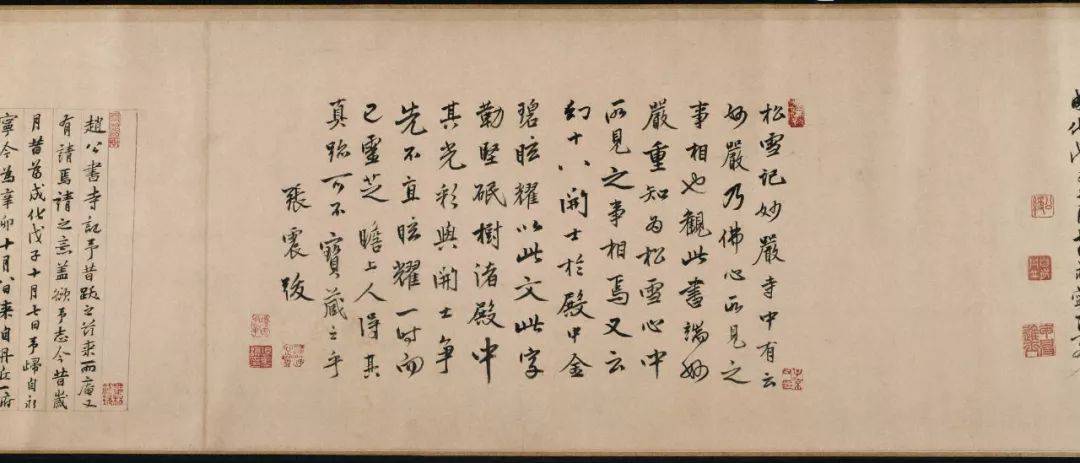 松雪記妙嚴寺中有云
妙嚴乃佛心所見之
事相也觀此書端妙
嚴重知為松雪心中
所見之事相焉又云
幻十八開士於殿中金
碧眩耀以此文此字
勒堅珉樹諸殿中
其光彩與開士爭
先不直眩耀一時而
已靈芝瞻上人得其
真跡可不寶藏之乎
張震跋
趙公書寺記予昔跋之茲來雨庵又
有請焉請之意蓋欲予志今昔歲
月昔為成化戊子十月七日予歸自永
寧今為辛卯十月八日來自丹丘